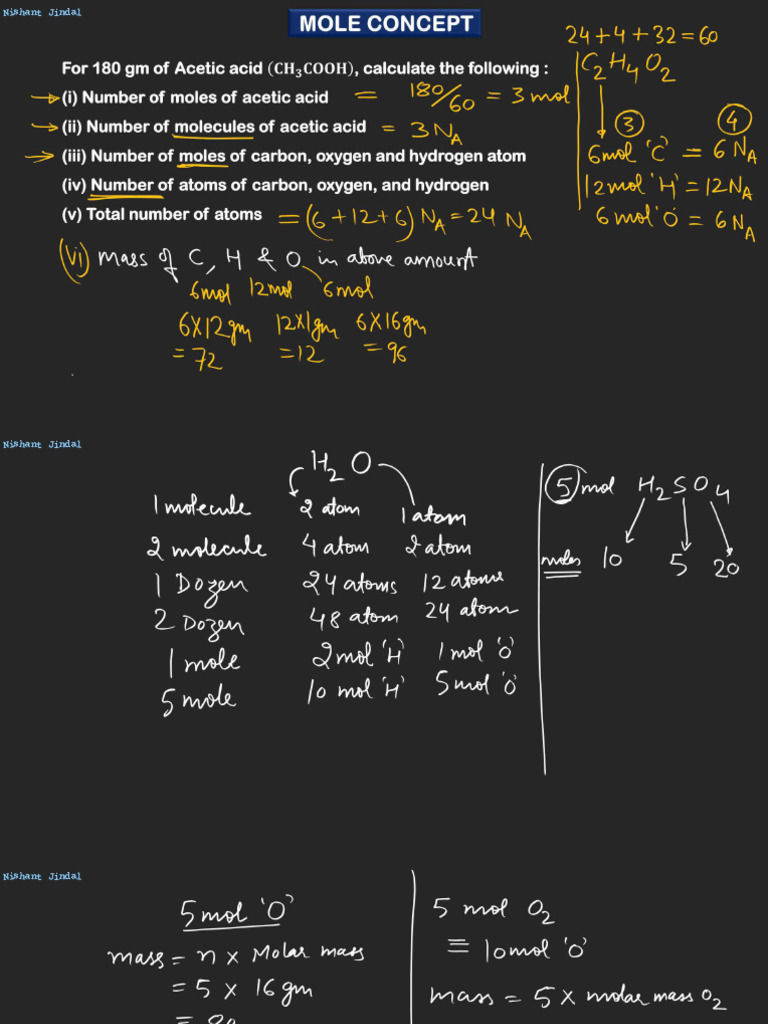 Nishant Jindal
MOLE CONCEPT
24 + 4 + 32 = 60
For 180 gm of Acetic acid (CH₃COOH), calculate the following :
C₂H₄O₂
(i) Number of moles of acetic acid = 180/60 = 3 mol
(ii) Number of molecules of acetic acid = 3 N_A
③ ④
(iii) Number of moles of carbon, oxygen and hydrogen atom
6 mol 'C' = 6 N_A
(iv) Number of atoms of carbon, oxygen, and hydrogen
12 mol 'H' = 12 N_A
(v) Total number of atoms = (6 + 12 + 6) N_A = 24 N_A
6 mol 'O' = 6 N_A
(vi) mass of C, H & O in above amount
6mol 12mol 6mol
6X12gm 12X1gm 6X16gm
= 72 = 12 = 96
Nishant Jindal
H₂O
1 molecule 2 atom 1 atom
2 molecule 4 atom 2 atom
1 Dozen 24 atoms 12 atoms
2 Dozen 48 atom 24 atom
1 mole 2 mol 'H' 1 mol 'O'
5 mole 10 mol 'H' 5 mol 'O'
5 mol H₂SO₄
moles 10 5 20
Nishant Jindal
5 mol 'O'
mass = n x Molar mass
= 5 x 16 gm
5 mol O₂
≡ 10 mol 'O'
mass = 5 x molar mass O₂